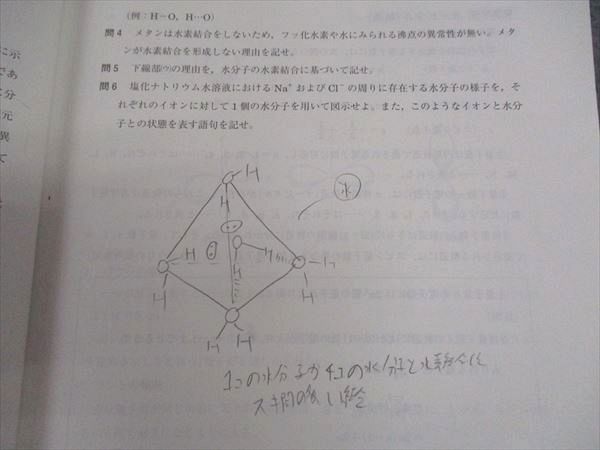 (例：H－O, H…O)
問4 メタンは水素結合をしないため，フッ化水素や水にみられる沸点の異常性が無い。メタ
ンが水素結合を形成しない理由を記せ。
問5 下線部(ウ)の理由を，水分子の水素結合に基づいて記せ。
問6 塩化ナトリウム水溶液における Na⁺ および Cl⁻ の周りに存在する水分子の様子を，そ
れぞれのイオンに対して1個の水分子を用いて図示せよ。また，このようなイオンと水分
子との状態を表す語句を記せ。
に示
であ
分
元
異
て
H
H
氷
H
H
H
H
H
H
H
1コの水分子が4コの水分子と水素結合し
スキ間の多い結合